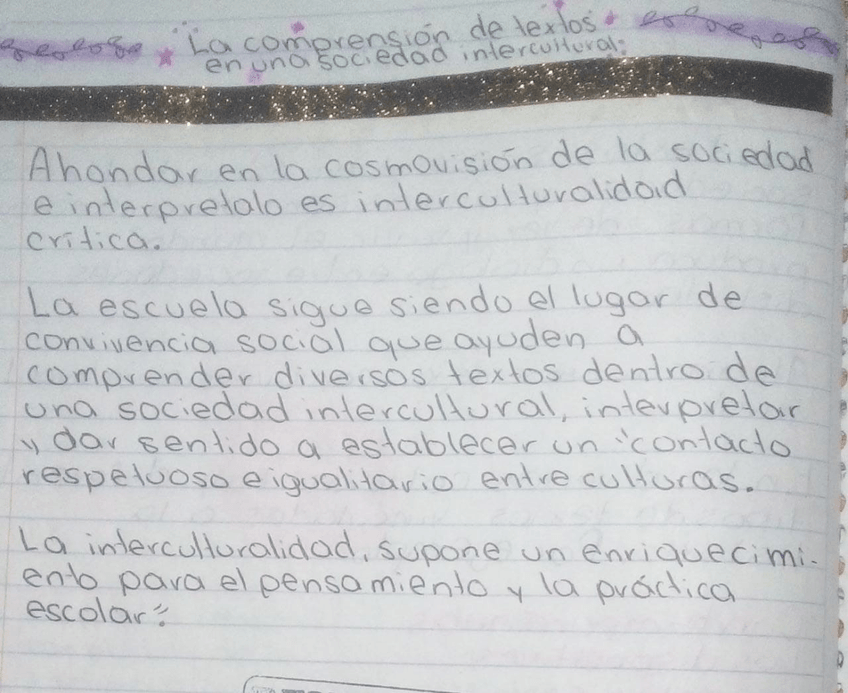 "La comprensión de textos
en una sociedad intercultural"
Ahondar en la cosmovisión de la sociedad
e interpretalo es interculturalidad
crítica.
La escuela sigue siendo el lugar de
convivencia social que ayuden a
comprender diversos textos dentro de
una sociedad intercultural, interpretar
y dar sentido a establecer un "contacto
respetuoso e igualitario entre culturas.
La interculturalidad, supone un enriquecimi-
ento para el pensamiento y la práctica
escolar".